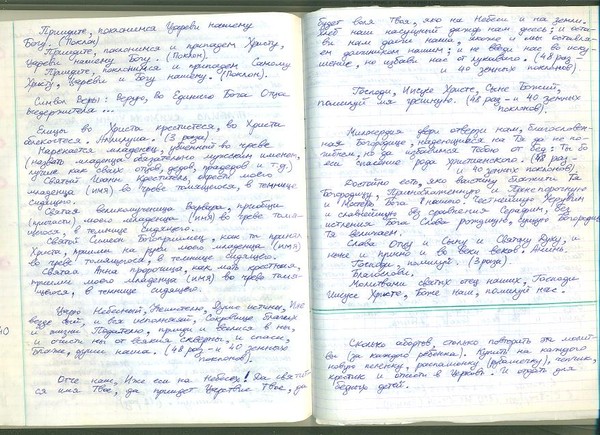 Приидите, поклонимся Цареви нашему
Богу. (Поклон)
Приидите, поклонимся и припадем Христу,
Цареви нашему Богу. (Поклон).
Приидите, поклонимся и припадем Самому
Христу, Цареви и Богу нашему. (Поклон).
Символ Веры: Верую, во Единого Бога Отца
Вседержителя
Елицы во Христа крестистеся, во Христа
облекостеся, Аллилуиа. (3 раза).
Нарекается младенец, убиенный во чреве
(назвать младенца обязательно мужским именем,
лучше как своих отцов, дедов, прадедов и т.д.)
Святый Иоанн Креститель, крести моего
младенца (имя) во чреве томящегося, в темнице
сидящего.
Святая великомученица Варвара, приобщи
(причасти) моего младенца (имя) во чреве томя-
щегося, в темнице сидящего.
Святый Симеон Богоприимец, как ты принял
Христа, прими на руки моего младенца (имя)
во чреве томящегося, в темнице сидящего.
Святая Анна пророчица, как мать крестная,
прими моего младенца (имя) во чреве томя-
щегося, в темнице сидящего.
Царю Небесный, Утешителю, Душе истины, Иже
везде сый, и вся исполняяй, Сокровище благих
и жизни Подателю, прииди и вселися в ны,
и очисти ны от всякия скверны, и спаси,
Блаже, души наша. (48 раз - и 40 земных
поклонов).
Отче наш, Иже еси на Небесех! Да святит-
ся имя Твое, да приидет Царствие Твое, да
будет воля Твоя, яко на Небеси и на земли.
Хлеб наш насущный даждь нам днесь; и оста-
ви нам долги наша, якоже и мы оставля-
ем должником нашим; и не введи нас во иску-
шение, но избави нас от лукаваго. (48 раз -
и 40 земных поклонов).
Господи, Иисусе Христе, Сыне Божий,
помилуй мя грешную. (48 раз - и 40 земных
поклонов).
Милосердия двери отверзи нам, Благословен-
ная Богородице, надеющиеся на Тя да не по-
гибнем, но да избавимся Тобою от бед: Ты бо
еси спасение рода христианского. (48 раз -
и 40 земных поклонов).
Достойно есть, яко воистину блажити Тя
Богородицу, Присноблаженную и Пренепорочную
и Матерь Бога нашего. Честнейшую Херувим
и славнейшую без сравнения Серафим, без
истления Бога Слова рождшую, сущую Богородицу,
Тя величаем.
Слава Отцу и Сыну и Святому Духу, и
ныне и присно и во веки веков. Аминь.
Господи помилуй. (3 раза).
Благослови.
Молитвами святых отец наших, Господи
Иисусе Христе, Боже наш, помилуй нас.
Сколько абортов, столько повторить эти молит-
вы (за каждого ребенка). Купить на каждого
новую пеленку, распашонку (рубашечку), чепчик,
крестик и отнести в Церковь. И отдать для
бедных детей.